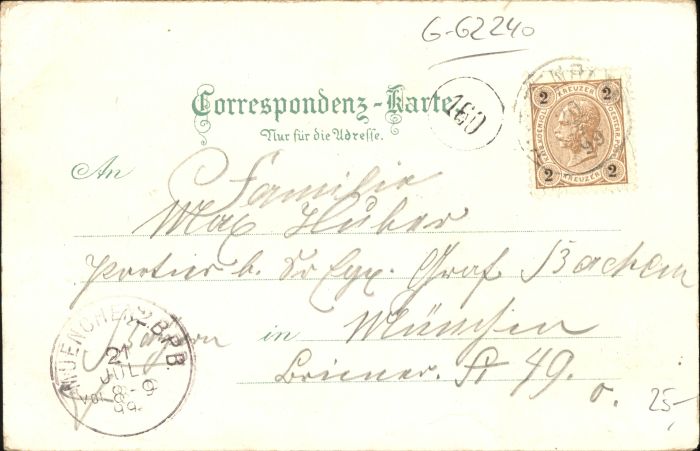 G-62240
2 KREUZER 2
2 KREUZER 2
Correspondenz-Karte
160
Nur für die Adresse.
An Familie
Max Huber
Portier b. Sr Egx. Graf
Bayern in München
Brienner. St 49.
MUENCHEN 2 B.P.B.
21
JUL
o. 25-